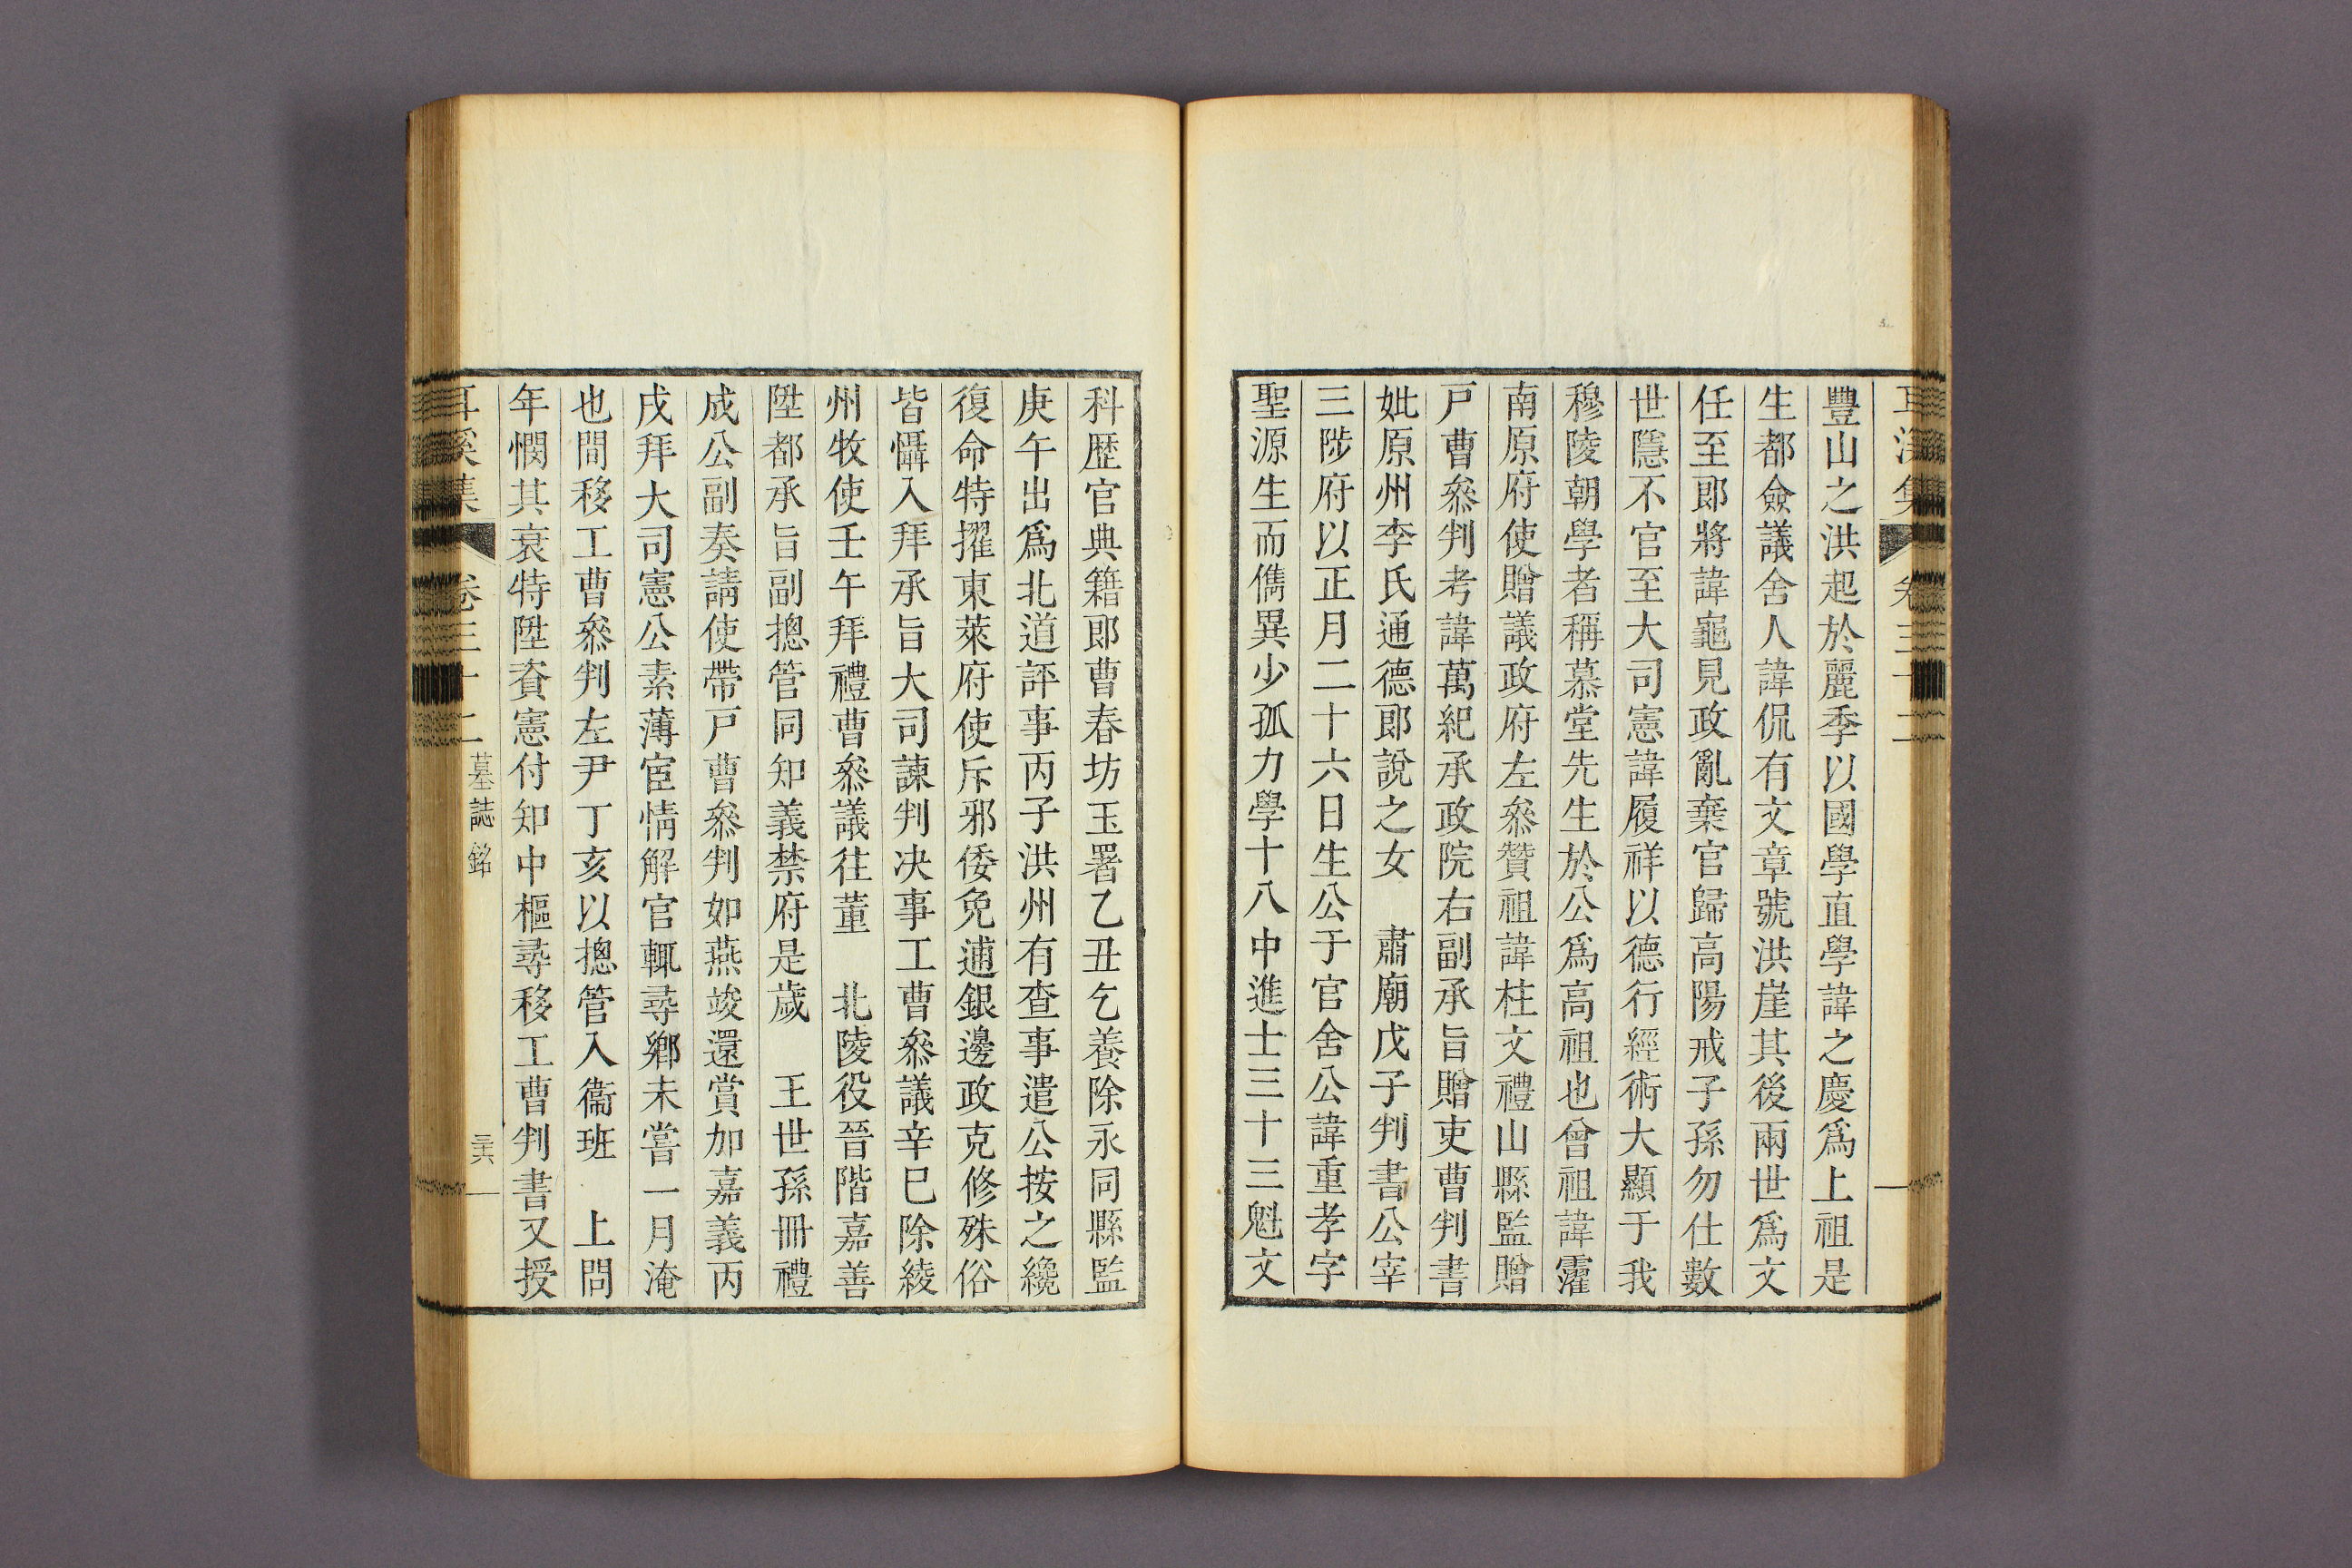 耳溪集 卷三十二
豐山之洪起於麗季以國學直學諱之慶爲上祖是
生都僉議舍人諱侃有文章號洪崖其後兩世爲文
任至郞將諱龜見政亂棄官歸高陽戒子孫勿仕數
世隱不官至大司憲諱履祥以德行經術大顯于我
穆陵朝學者稱慕堂先生於公爲高祖也曾祖諱霶
南原府使贈議政府左叅贊祖諱柱文禮山縣監贈
戶曹叅判考諱萬紀承政院右副承旨贈吏曹判書
妣原州李氏通德郞說之女 肅廟戊子判書公宰
三陟府以正月二十六日生公于官舍公諱重孝字
聖源生而儁異少孤力學十八中進士三十三魁文
科歷官典籍郞曹春坊玉署乙丑乞養除永同縣監
庚午出爲北道評事丙子洪州有査事遣公按之纔
復命特擢東萊府使斥邪倭免逋銀邊政克修殊俗
皆懾入拜承旨大司諫判决事工曹叅議辛巳除綾
州牧使壬午拜禮曹叅議往董 北陵役晉階嘉善
陞都承旨副摠管同知義禁府是歲 王世孫冊禮
成公副奏請使帶戶曹叅判如燕竣還賞加嘉義丙
戌拜大司憲公素薄宦情解官輒尋鄕未嘗一月淹
也間移工曹叅判左尹丁亥以摠管入衞班 上問
年憫其衰特陞資憲付知中樞尋移工曹判書又授
耳溪集 卷三十二 墓誌銘 三六